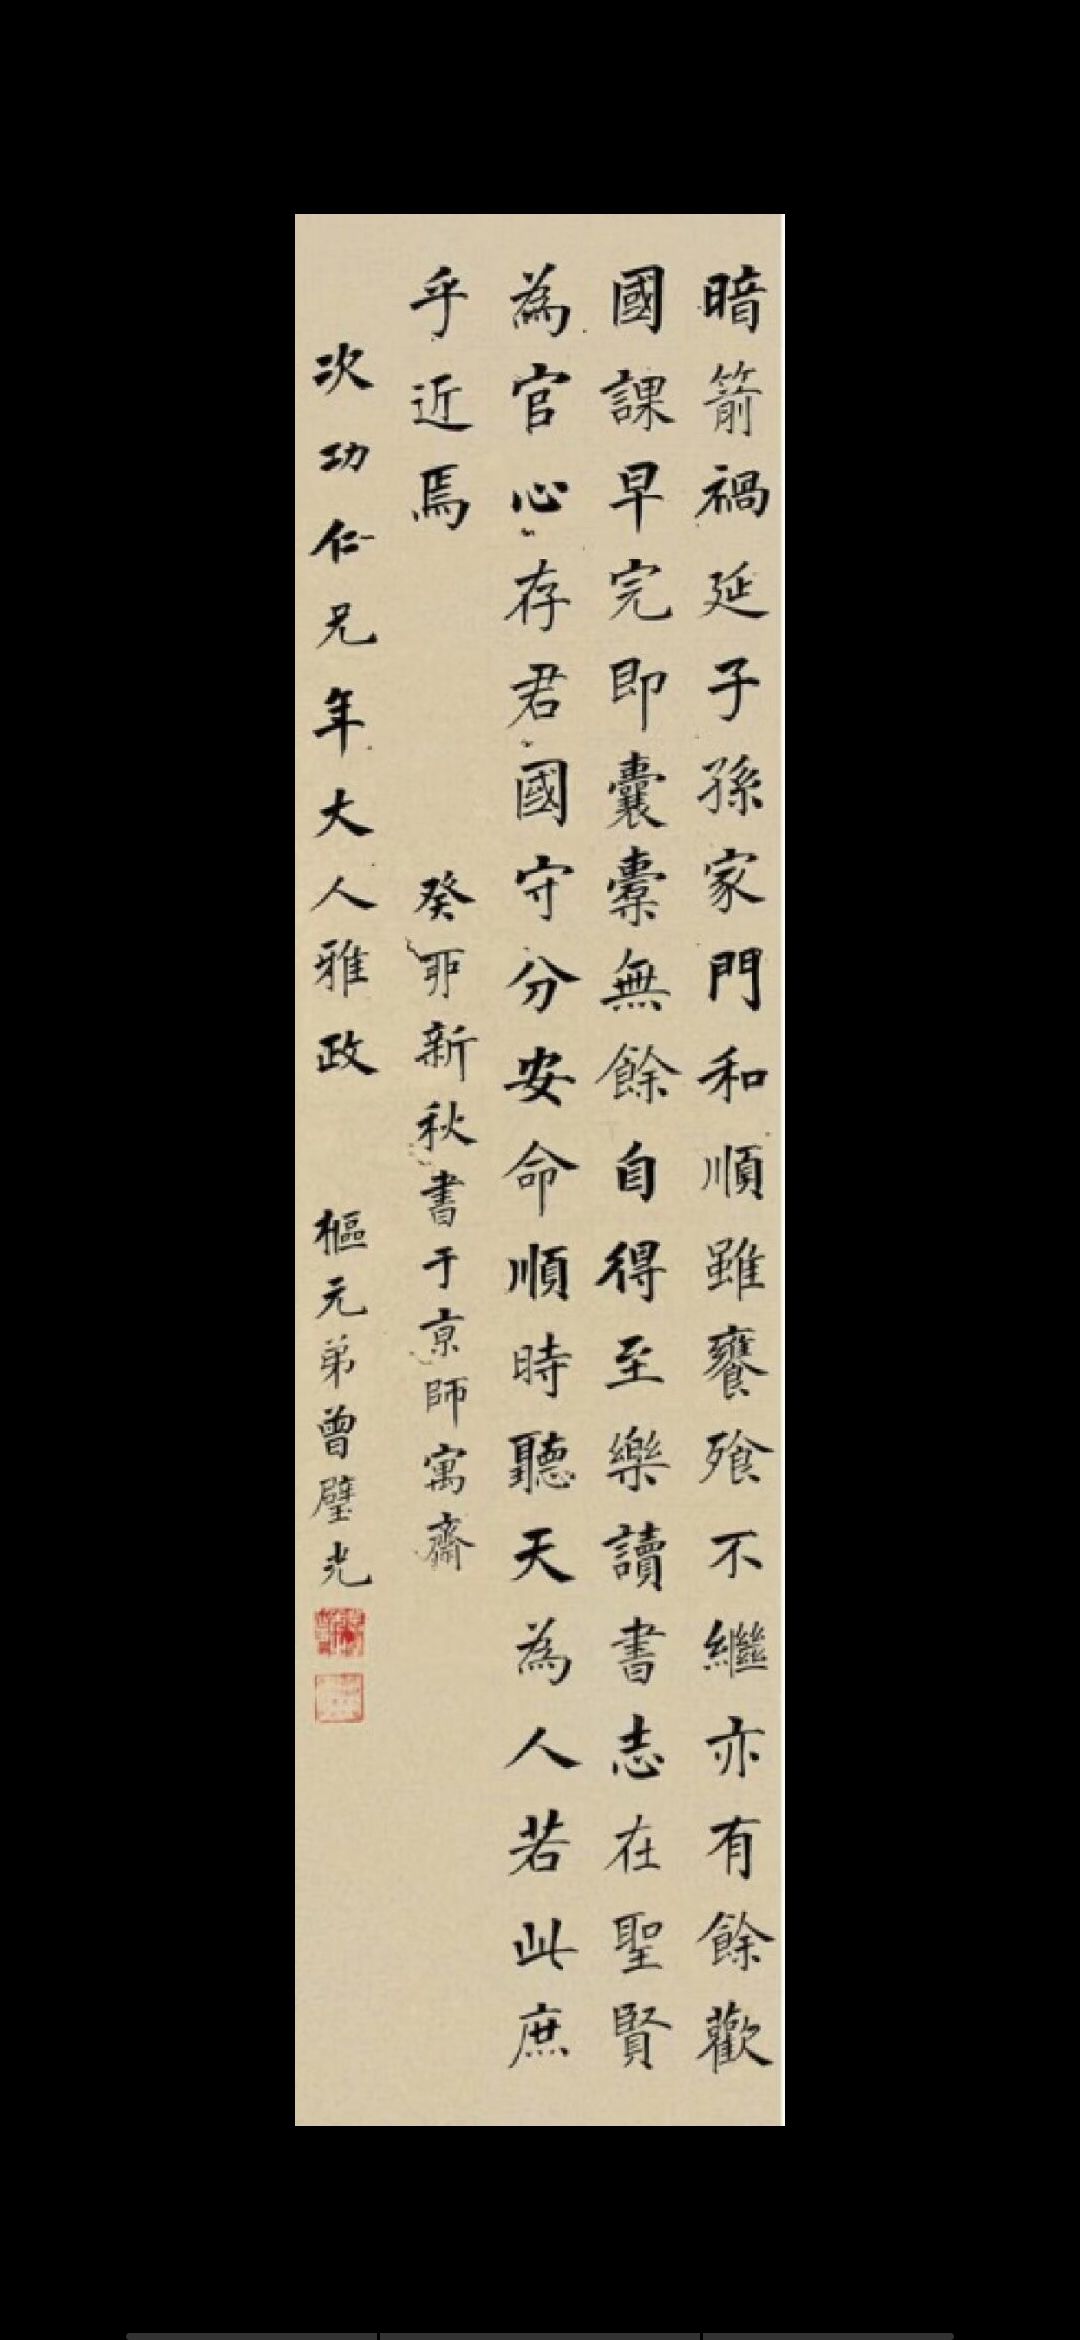 暗箭禍延子孫家門和順雖饔飱不繼亦有餘歡
國課早完即囊橐無餘自得至樂讀書志在聖賢
為官心存君國守分安命順時聽天為人若此庶
乎近焉
癸夘新秋書于京師寓齋
次功仁兄年大人雅政
樞元弟曾璧光